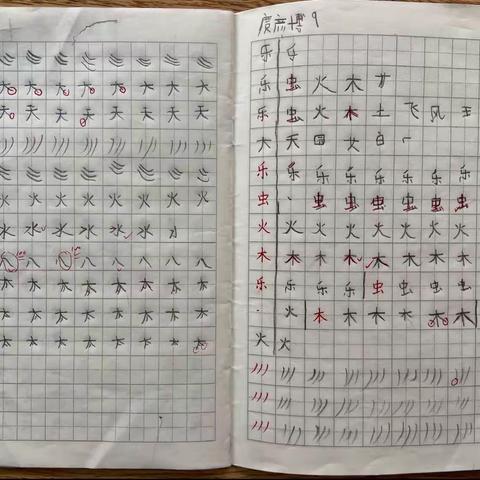 大 大 大 大 大 大 大 大
天 天 天 天 天 天 天 天
火 火 火 火 火 火 火 火
水 水 水 水 水 水
八 八 八 八 八 八 八 八
木 木 木 木 木 木 木 木
木 木 木 木 木 木 木 木
木 木 木 木 木 木 木 木
博 9
乐 乐
乐 虫 火 木
乐 虫 火 木 土 飞 风 王
大 天 国 女 白
乐 乐 乐 乐 乐 乐 乐 乐
虫 虫 虫 虫 虫 虫 虫
火 火 火 火 火 火 火 火
木 木 木 木 木 木 木 木
乐 乐 乐 乐 虫 虫 虫 虫
火 木 木 木 木 木 木
火 火